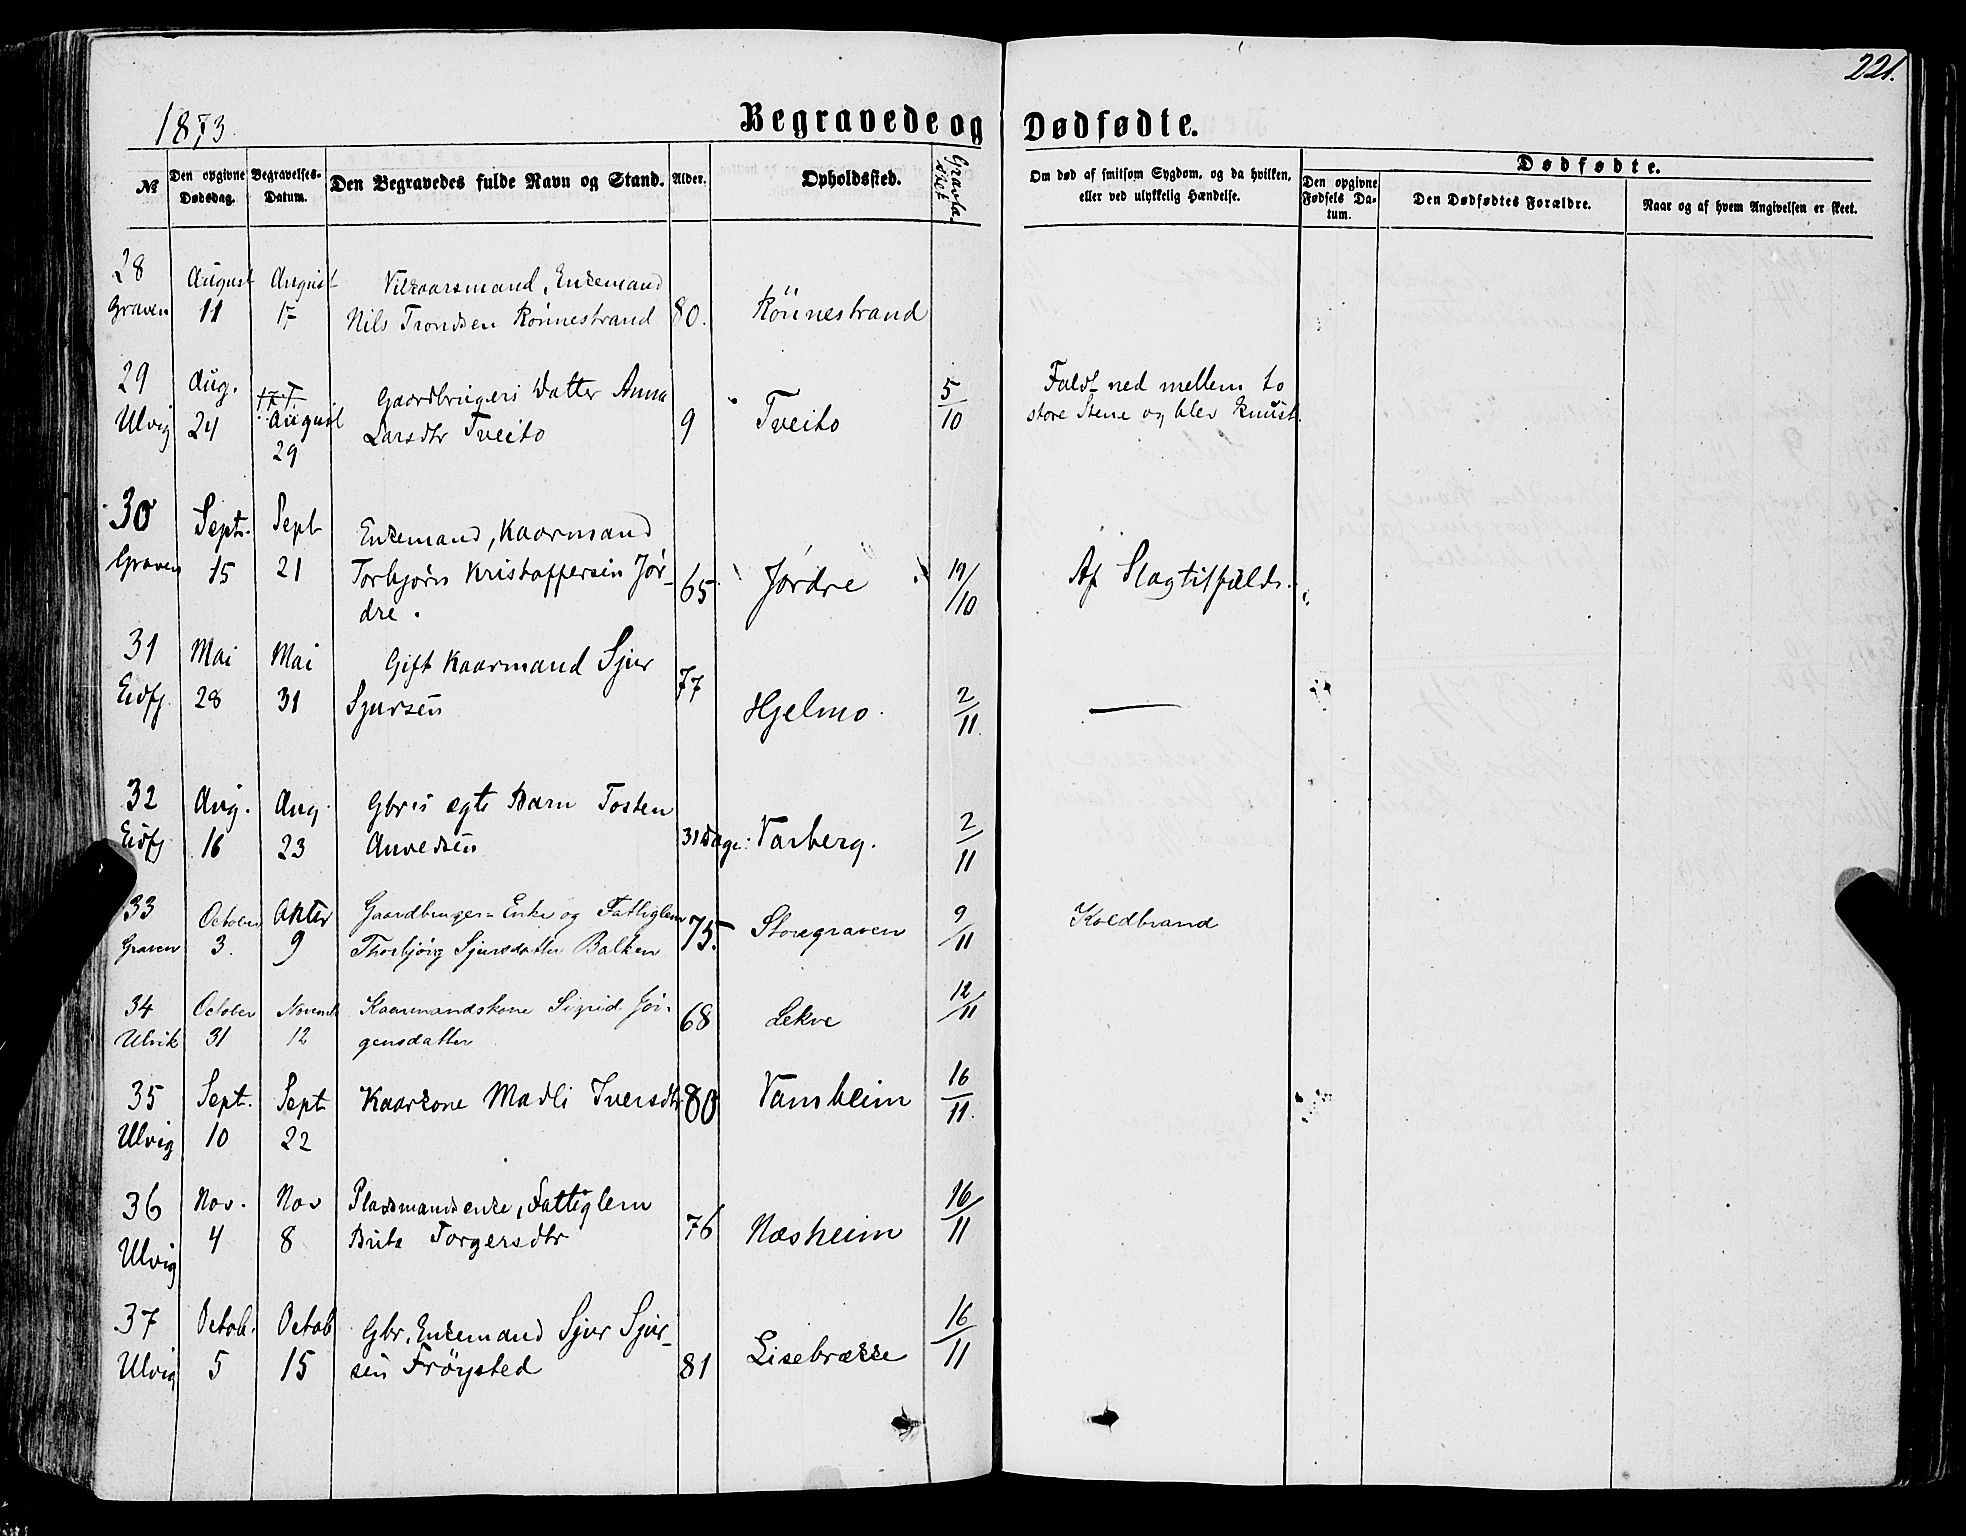 221.
1873.
Begravede og Dødfødte.
№
Den opgivne Dødsdag.
Begravelses-Datum.
Den Begravedes fulde Navn og Stand.
Alder.
Opholdssted.
Om død af smitsom Sygdom, og da hvilken, eller ved ulykkelig Hændelse.
Dødfødte.
Den opgivne Fødsels Da-tum.
Den Dødfødtes Forældre.
Naar og af hvem Angivelsen er skeet.
28 August August Vilkaarsmand, Enkemand
Graven 11 17 Nils Trondsen Rönnestrand 80. Rönnestrand
29 Aug. 17 T. Gaardbrugers Datter Anna 5/10 Faldt ned mellem to
Ulvig 24 August 29 Larsdtr Tveito 9 Tveito store Stene og blev knust.
30 Sept. Sept Enkemand, Kaarmand
Graven 15 21 Torbjørn Kristoffersen Jør- 65 Jørdre 19/10 Af Slagtilfælde.
dre.
31 Mai Mai Gift Kaarmand Sjur 77
Eidfj. 28 31 Sjursen Hjelmo. 2/11 —
32 Aug. Aug. Gbrs ægte Barn Tosten
Eidfj 16 23 31 Dage. Varberg. 2/11
33 October Oktbr Gaardbruger-Enke og Fattiglem
Graven 3. 9 Thorbjørg Sjursdatter Balken 75. Storegraven 9/11 Koldbrand
34 October Novemb Kaarmandskone Sigrid Jør-
Ulvik 31 12 gensdatter 68 Lekve 12/11
35 Sept. Sept Kaarkone Madli Iversdtr 80 Vamheim 16/11.
Ulvig 10 22
36 Nov. Nov Pladsmandsenke, Fattiglem
Ulvig 4 8 Brita Torgersdtr 76 Næsheim 16/11
37 Octob. Octob Gbr. Enkemand Sjur Sjur-
Ulvig 5 15 sen Fröysted 81 Lisebrække 16/11